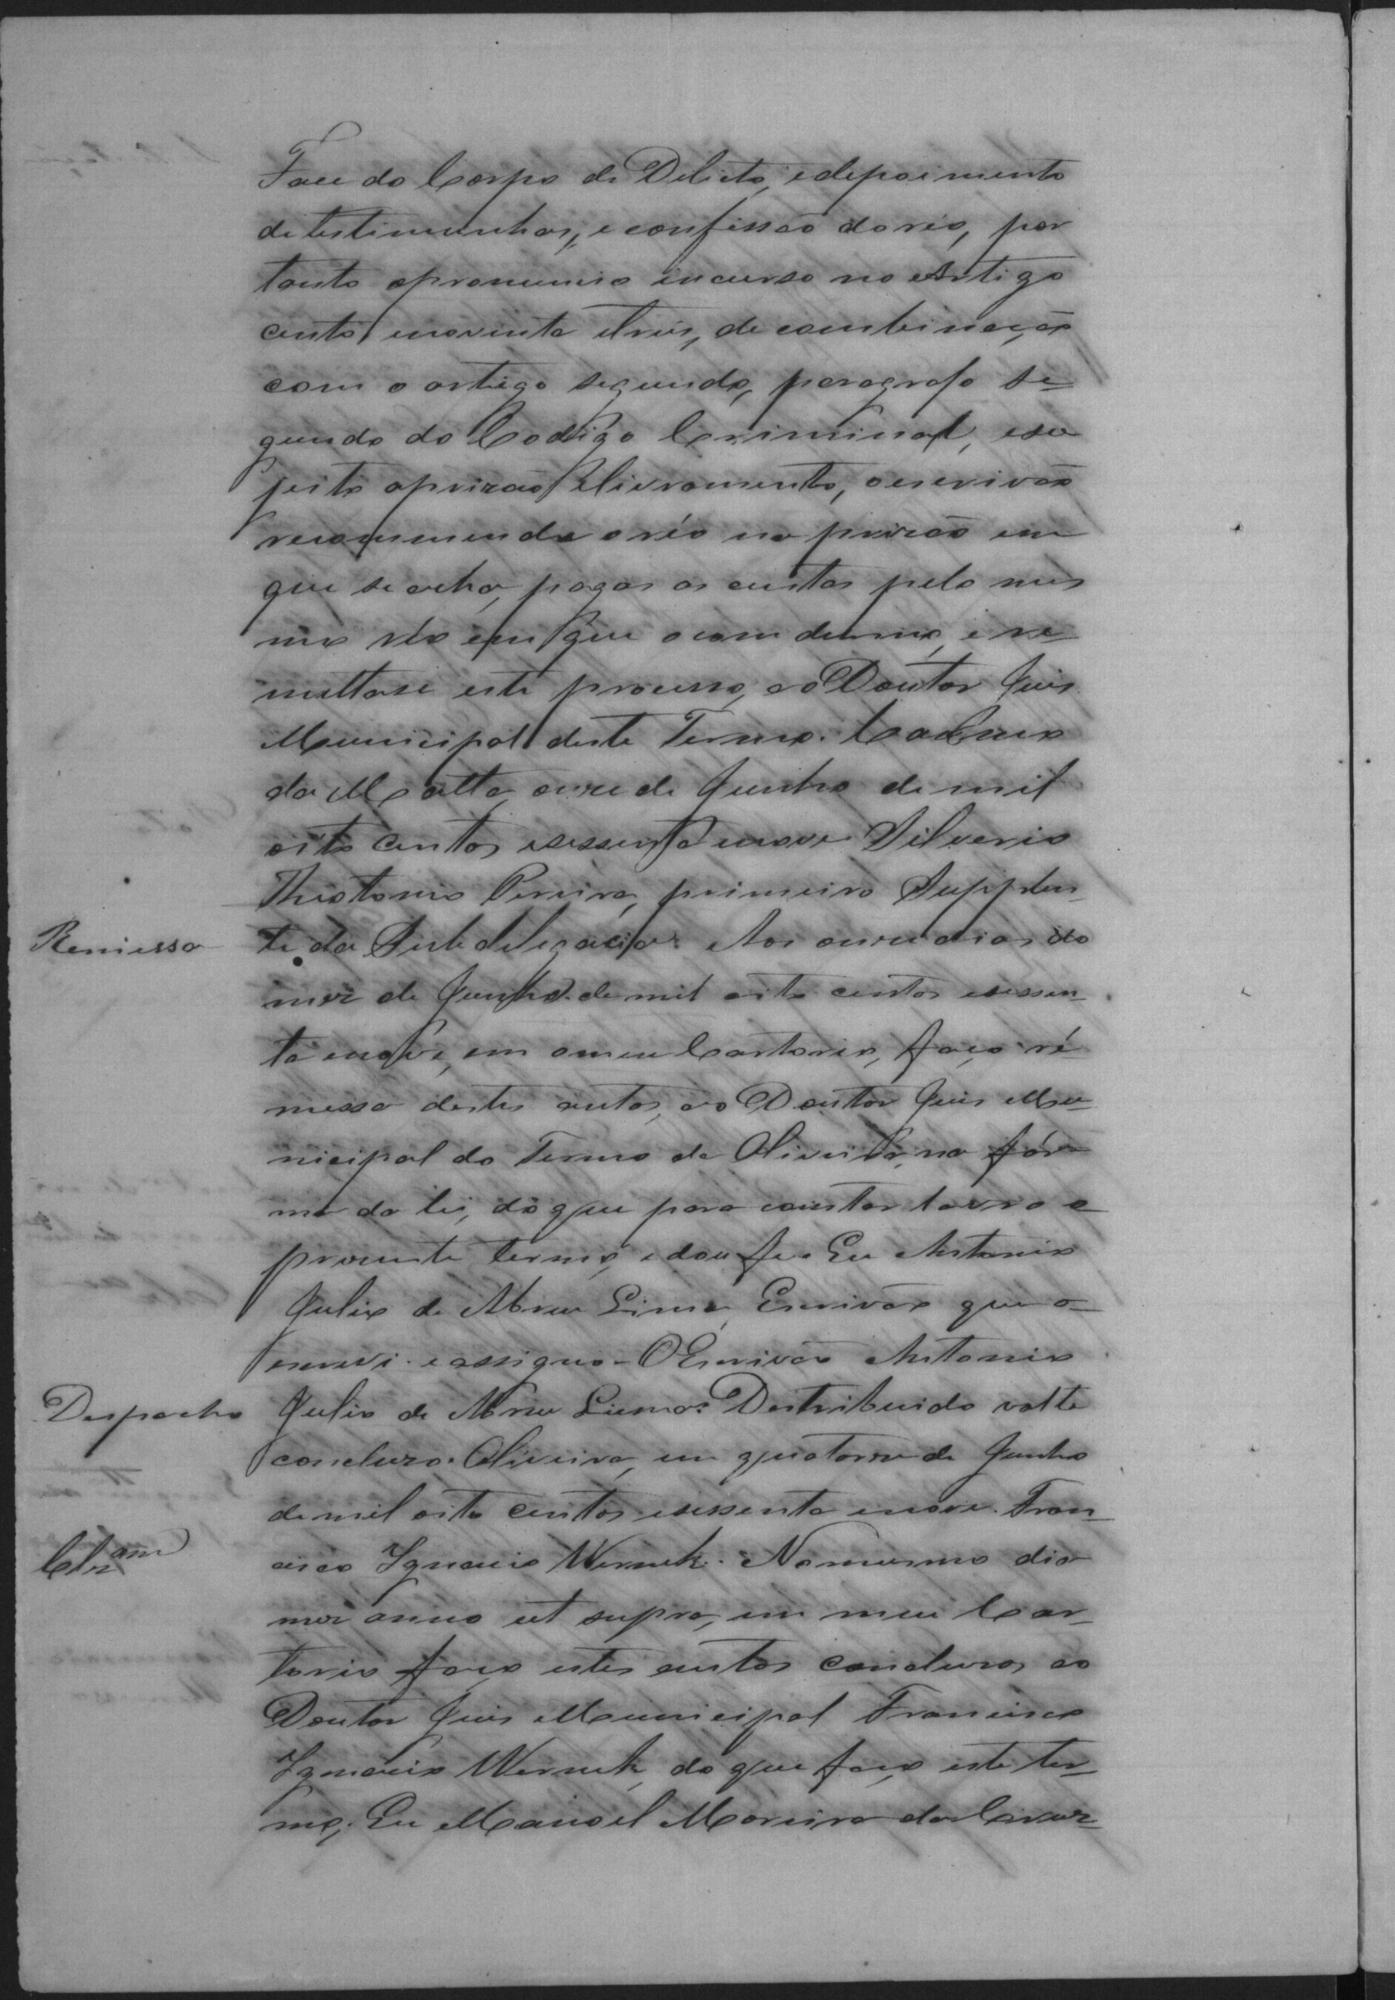 Face do Corpo de Delicto, e depoimento
de testimunhas, e confissaõ do reo, por
tanto o pronuncio incurso no Artigo
cento e noventa e tres, de combinaçaõ
com o artigo segundo, paragrafo se=
gundo do Codigo Criminal, e su
jeito aprizaõ e livramento, o escrivaõ
recommende o réo na prizaõ em
que se acha, pagas as custas pelo mes
mo réo em que o condemno, e re
mettase este processo, ao Doutor Juis
Municipal deste Termo.
da Matta, onze de Junho de mil
oito centos e sessenta e nove. Silverio
Theotonio Pereira, primeiro Supplen-
Remessa te da Subdelegacia. Aos onze dias do
mez de Junho de mil oito centos e sessen-
ta e nove, em o meu Cartorio, faço ré
messa destes autos, ao Doutor Juis Mu-
nicipal do Termo de Oliveira, na fór-
ma da lei, do que para constar lavro o
presente termo, e dou fe. Eu Antonio
Julio de Abreu Lima, Escrivaõ que o
escrevi. e assigno. O Escrivaõ Antonio
Despacho Julio de Abreu Lima. Destribuido volte
concluzo. Oliveira, em quatorze de Junho
de mil oito centos e sessenta e nove. Fran-
Clzam cisco Ignacio Wernek. No mesmo dia
mez anno ut supra, em meu Car-
torio faço estes autos concluzos ao
Doutor Juis Municipal Francisco
Ignacio Wernek, do que faço este ter-
mo, Eu Manoel Moreira da